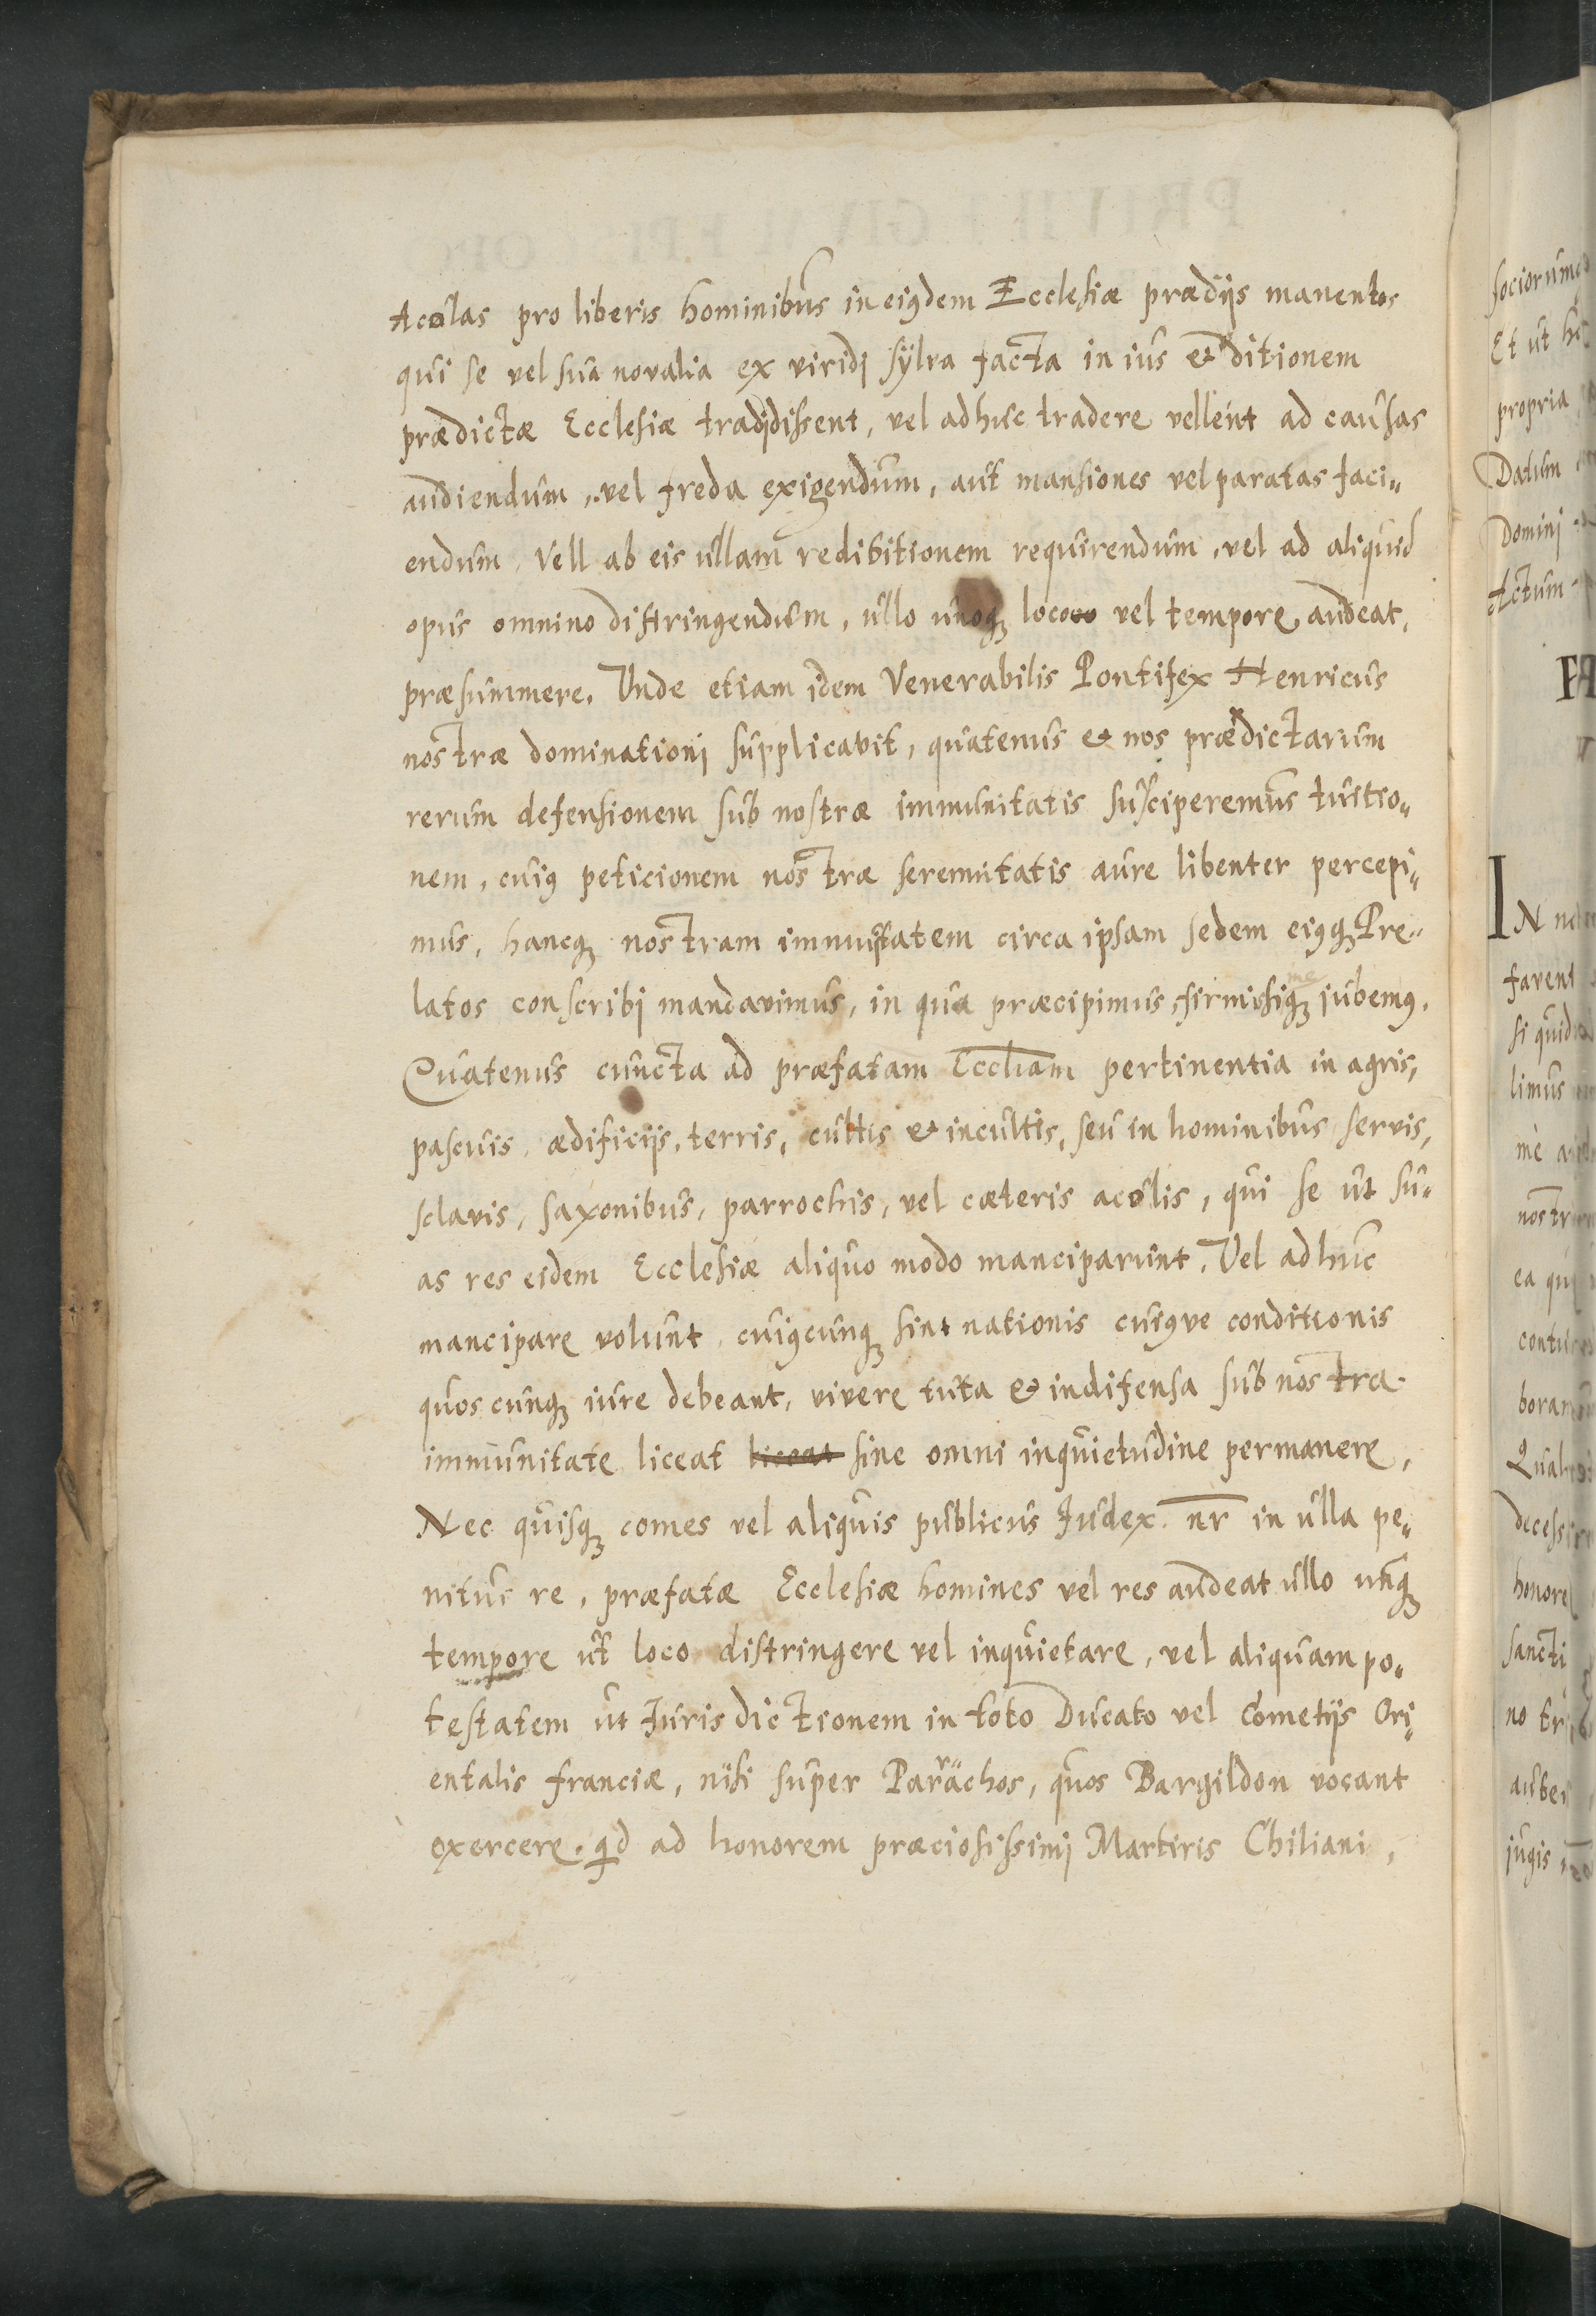 Acolas pro liberis hominibus in eiꝰdem Ecclesiæ prædijs manentes
qui se vel sua novalia ex viridj sÿlva facta in ius & ditionem
prædictæ Ecclesiæ tradjdissent, vel adhuc tradere vellent ad causas
audiendum, vel freda exigendum, aut mansiones vel paratas faci„
endum, Vell ab eis ullam redibitionem requirendum, vel ad aliquid
opus omnino distringendum, ullo unoqꝫ loco vel tempore audeat,
præsummere. Vnde etiam idem Venerabilis Pontifex Henricus
nostræ dominationj supplicavit, quatenus & nos prædictarum
rerum defensionem sub nostræ immunitatis susciperemus tuitio„
nem, cuiꝰ peticionem nostræ serenitatis aure libenter percepi„
mus, hancqꝫ nostram immunitatem circa ipsam sedem eiꝰqꝫ Pre„
latos conscribj mandavimus, in qua præcipimus, firmissimeqꝫ jubemꝰ.
Quatenus cuncta ad præfatam Eccliam pertinentia in agris,
pascuis, ædificijs, terris, cultis & incultis, seu in hominibus servis,
sclavis, saxonibus, parrochis, vel cæteris acolis, qui se ut su„
as res eidem Ecclesiæ aliquo modo manciparunt. Vel adhuc
mancipare volunt, cuiꝰcunqꝫ sint nationis cuiꝰve conditionis
quoscunqꝫ iure debeant, vivere tuta & indifensa sub nostra
immunitate liceat liceat sine omni inquietudine permanere,
Nec quisqꝫ comes vel aliquis publicus Iudex. nr̄ in ulla pe„
nitus re, præfatæ Ecclesiæ homines vel res audeat ullo unqꝫ
tempore ut loco distringere vel inquietare, vel aliquam po„
testatem ut Iurisdictionem in toto Ducato vel Cometijs Ori„
entalis franciæ, nisi super Parrachos, quos Bargildon vocant
exercere. qd ad honorem præciosissimj Martiris Chiliani,
sociorumq
Et ut h
propria
Datum
Domini
Actum
IN no
favent
si quid
limus
me a
nostr
ea qu
contu
boram
Qual
decess
honore
sancti
no tr
auber
jugis